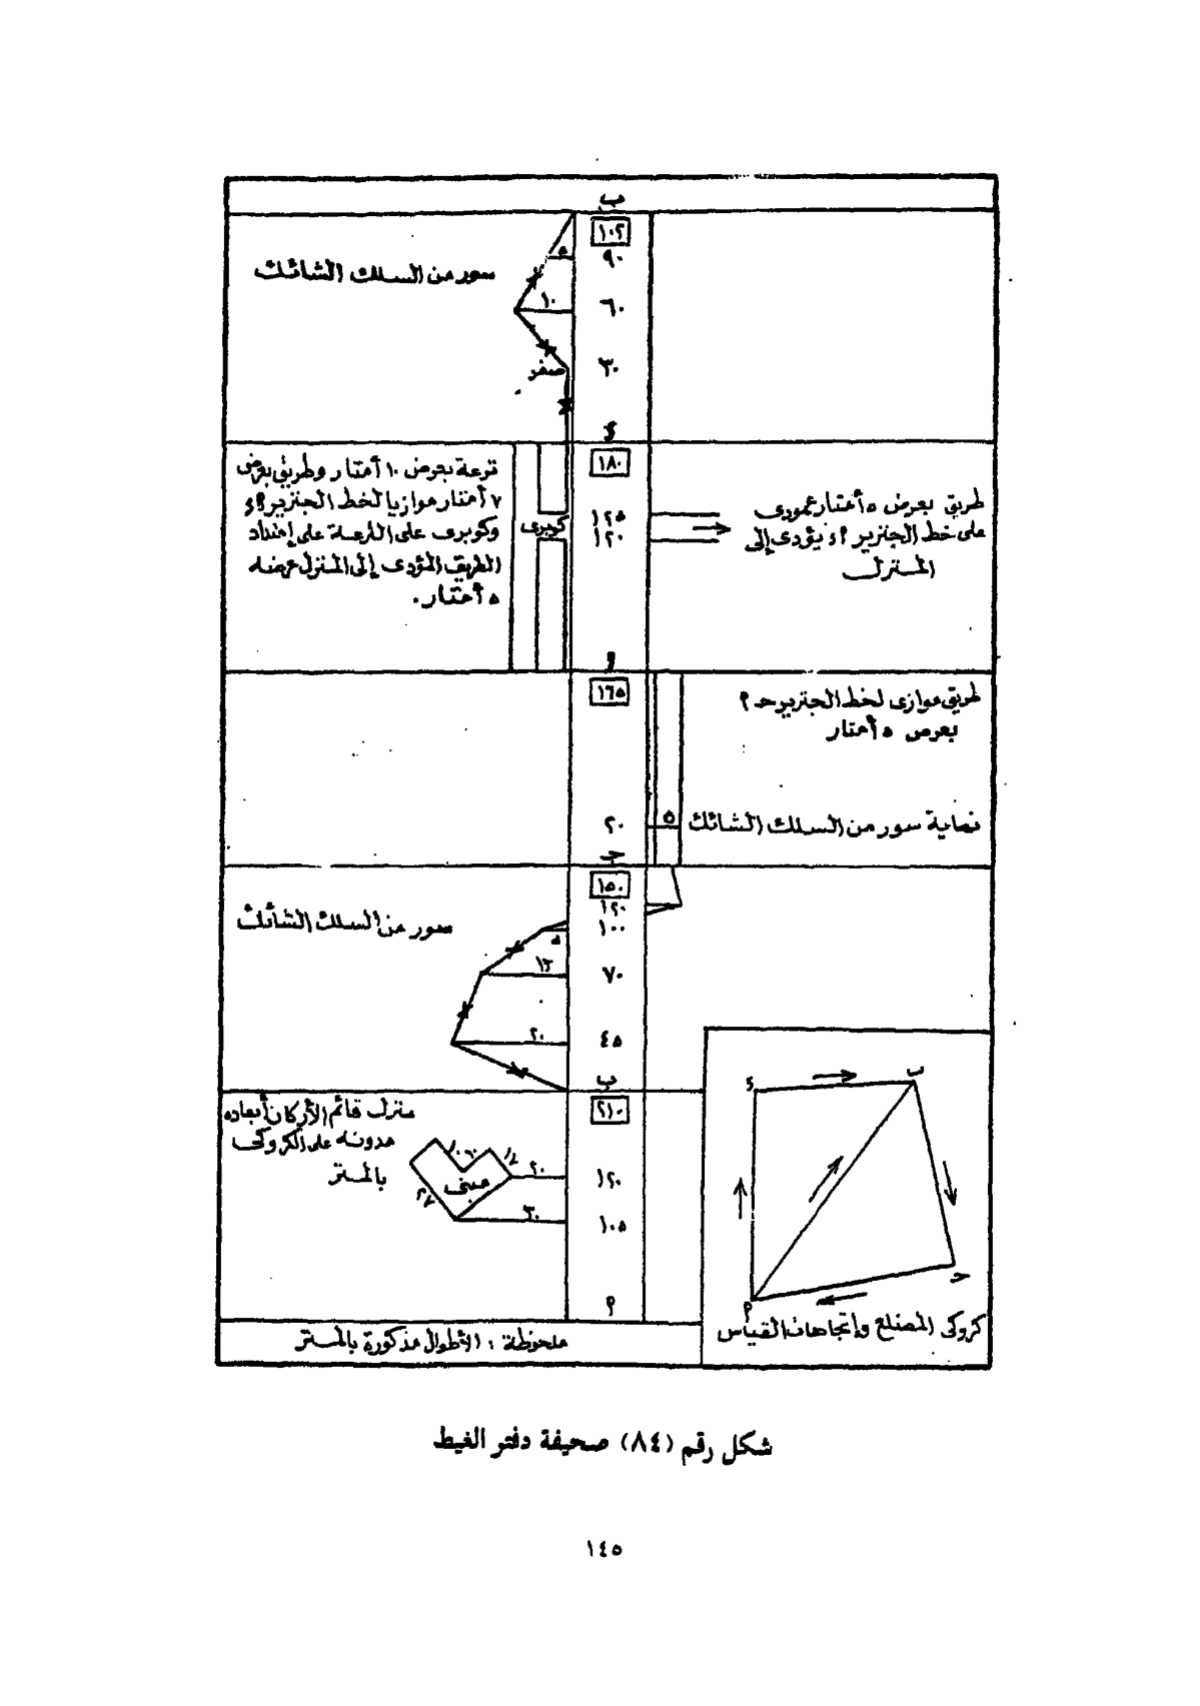 ب
١٠٢
٩٠
٥
سور من السلك الشائك
٦٠
١٠
٣٠
صفر
ء
١٨٠
ترعة بعرض ١٠ أمتار وطريق بعرض
٧ أمتار موازيا لخط الجنزير ٩ء
وكوبرى على الترعة على إمتداد
الطريق المؤدى إلى المنزل عرضه
٥ أمتار.
كوبرى
١٢٥
١٢٠
طريق بعرض ٥ أمتار عمودى
على خط الجنزير ٩ء يؤدى إلى
المنزل
٩
١٦٥
طريق موازى لخط الجنزير حـ ٩
بعرض ٥ أمتار
٢٠
٥
نهاية سور من السلك الشائك
حـ
١٥٠
١٢٠
١٠٠
٥
سور من السلك الشائك
٧٠
١٢
٤٥
٢٠
ب
٢١٠
منزل قائم الأركان أبعاده
مدونه على الكروكى
بالمتر
مبنى
٢٧
٢٠
١٢٠
٣٠
١٠٥
٩
ء
ب
حـ
٩
كروكى المضلع وإتجاهات القياس
ملحوظة : الأطوال مذكورة بالمتر
شكل رقم (٨٤) صحيفة دفتر الغيط
١٤٥